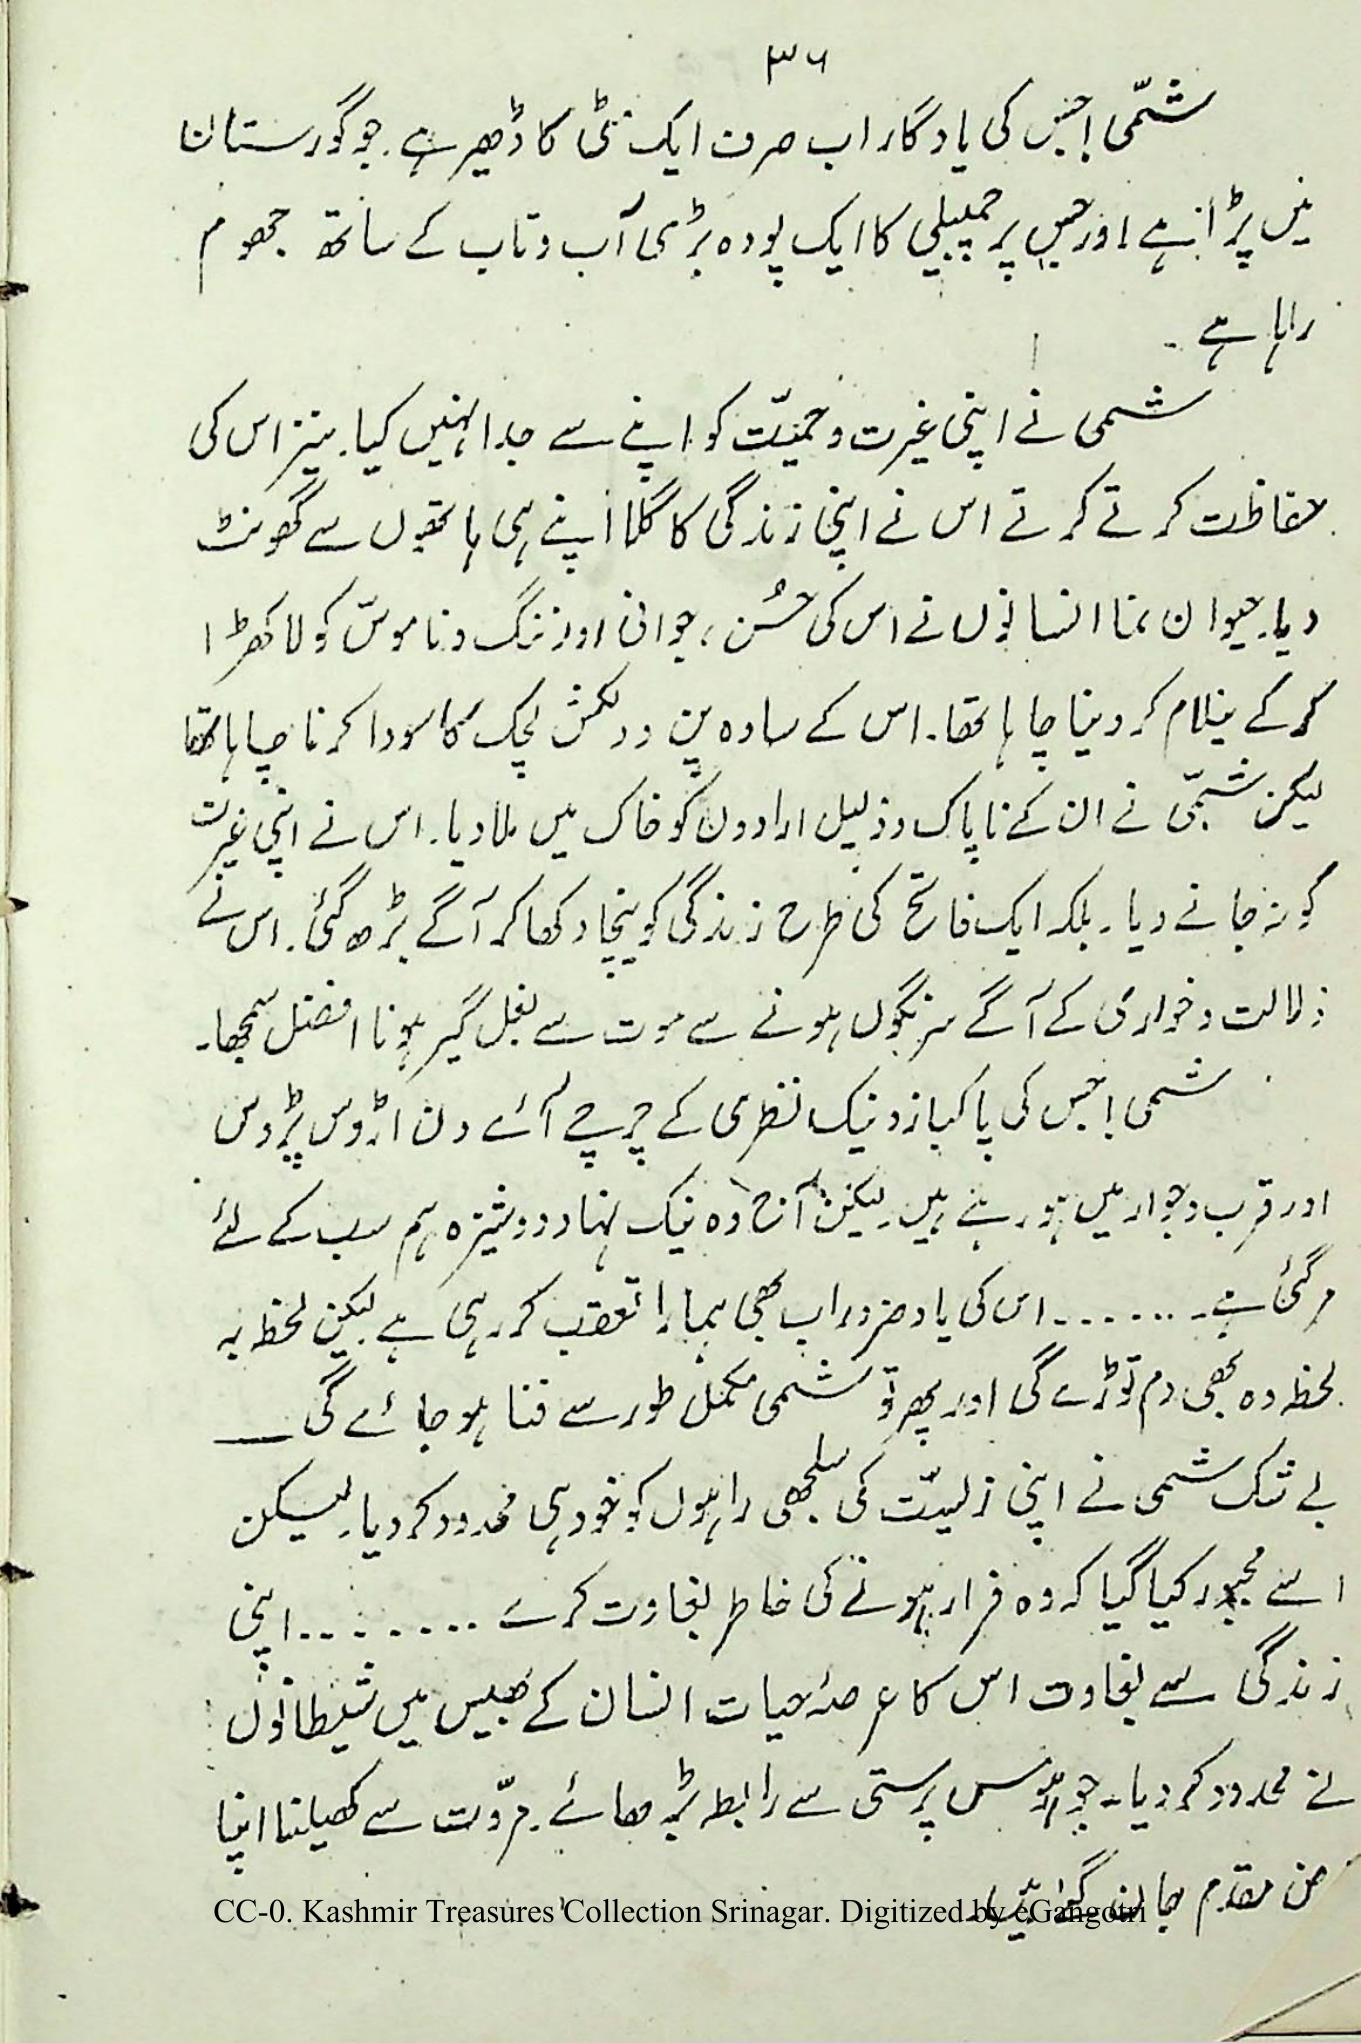 ۳۶
شمّی! جس کی یادگار اب صرف ایک مٹی کا ڈھیر ہے۔ جو گورستان
میں پڑا ہے اور جس پر چمبیلی کا ایک پودہ بڑی آب و تاب کے ساتھ جھوم
رہا ہے۔
شمی نے اپنی غیرت و حمیّت کو اپنے سے جدا نہیں کیا۔ نیز اس کی
حفاظت کرتے کرتے اس نے اپنی زندگی کا گلا اپنے ہی ہاتھوں سے گھونٹ
دیا۔ حیوان نما انسانوں نے اس کی حُسن، جوانی اور ننگ و ناموسّ کو لا کھڑا
کر کے نیلام کر دینا چاہا تھا۔ اس کے سادہ پن و دلکش لچک کا سودا کرنا چاہا تھا
لیکن شمّی نے ان کے ناپاک و ذلیل ارادوں کو خاک میں ملا دیا۔ اس نے اپنی غیرت
کو نہ جانے دیا۔ بلکہ ایک فاتح کی طرح زندگی کو نیچا دکھا کر آگے بڑھ گئی۔ اس نے
ذلالت و خواری کے آگے سرنگوں ہونے سے موت سے بغل گیر ہونا افضل سمجھا۔
شمی! جس کی پاکباز و نیک نظری کے چرچے آئے دن اڑوس پڑوس
اور قرب و جوار میں ہو رہے ہیں۔ لیکن آج وہ نیک نہاد دوشیزہ ہم سب کے لئے
مر گئی ہے۔....... اس کی یاد ضرور اب بھی ہمارا تعقب کر رہی ہے۔ لیکن لحظہ بہ
لحظہ وہ بھی دم توڑے گی اور پھر تو شمی مکمل طور سے فنا ہو جائے گی ــــ
بے شک شمی نے اپنی زیست کی سلجھی راہوں کو خود ہی محدود کر دیا۔ لیکن
اسے مجبور کیا گیا کہ وہ فرار ہونے کی خاطر بغاوت کرے ........ اپنی
زندگی سے بغاوت اس کا عرصۂ حیات انسان کے بھیس میں شیطانوں
نے محدود کر دیا۔ جو ہوس پرستی سے رابطہ بڑھائے۔ مروّت سے کھیلنا اپنا
مقدم جان
CC-0. Kashmir Treasures Collection Srinagar. Digitized by eGangotri